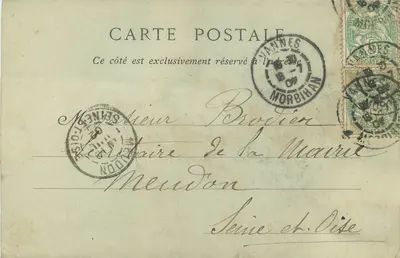 CARTE POSTALE
Ce côté est exclusivement réservé à l'adresse
VANNES
MORBIHAN
Monsieur Brodier
de la Mairie
Meudon
Seine et Oise
MEUDON
SEINE-ET-OISE